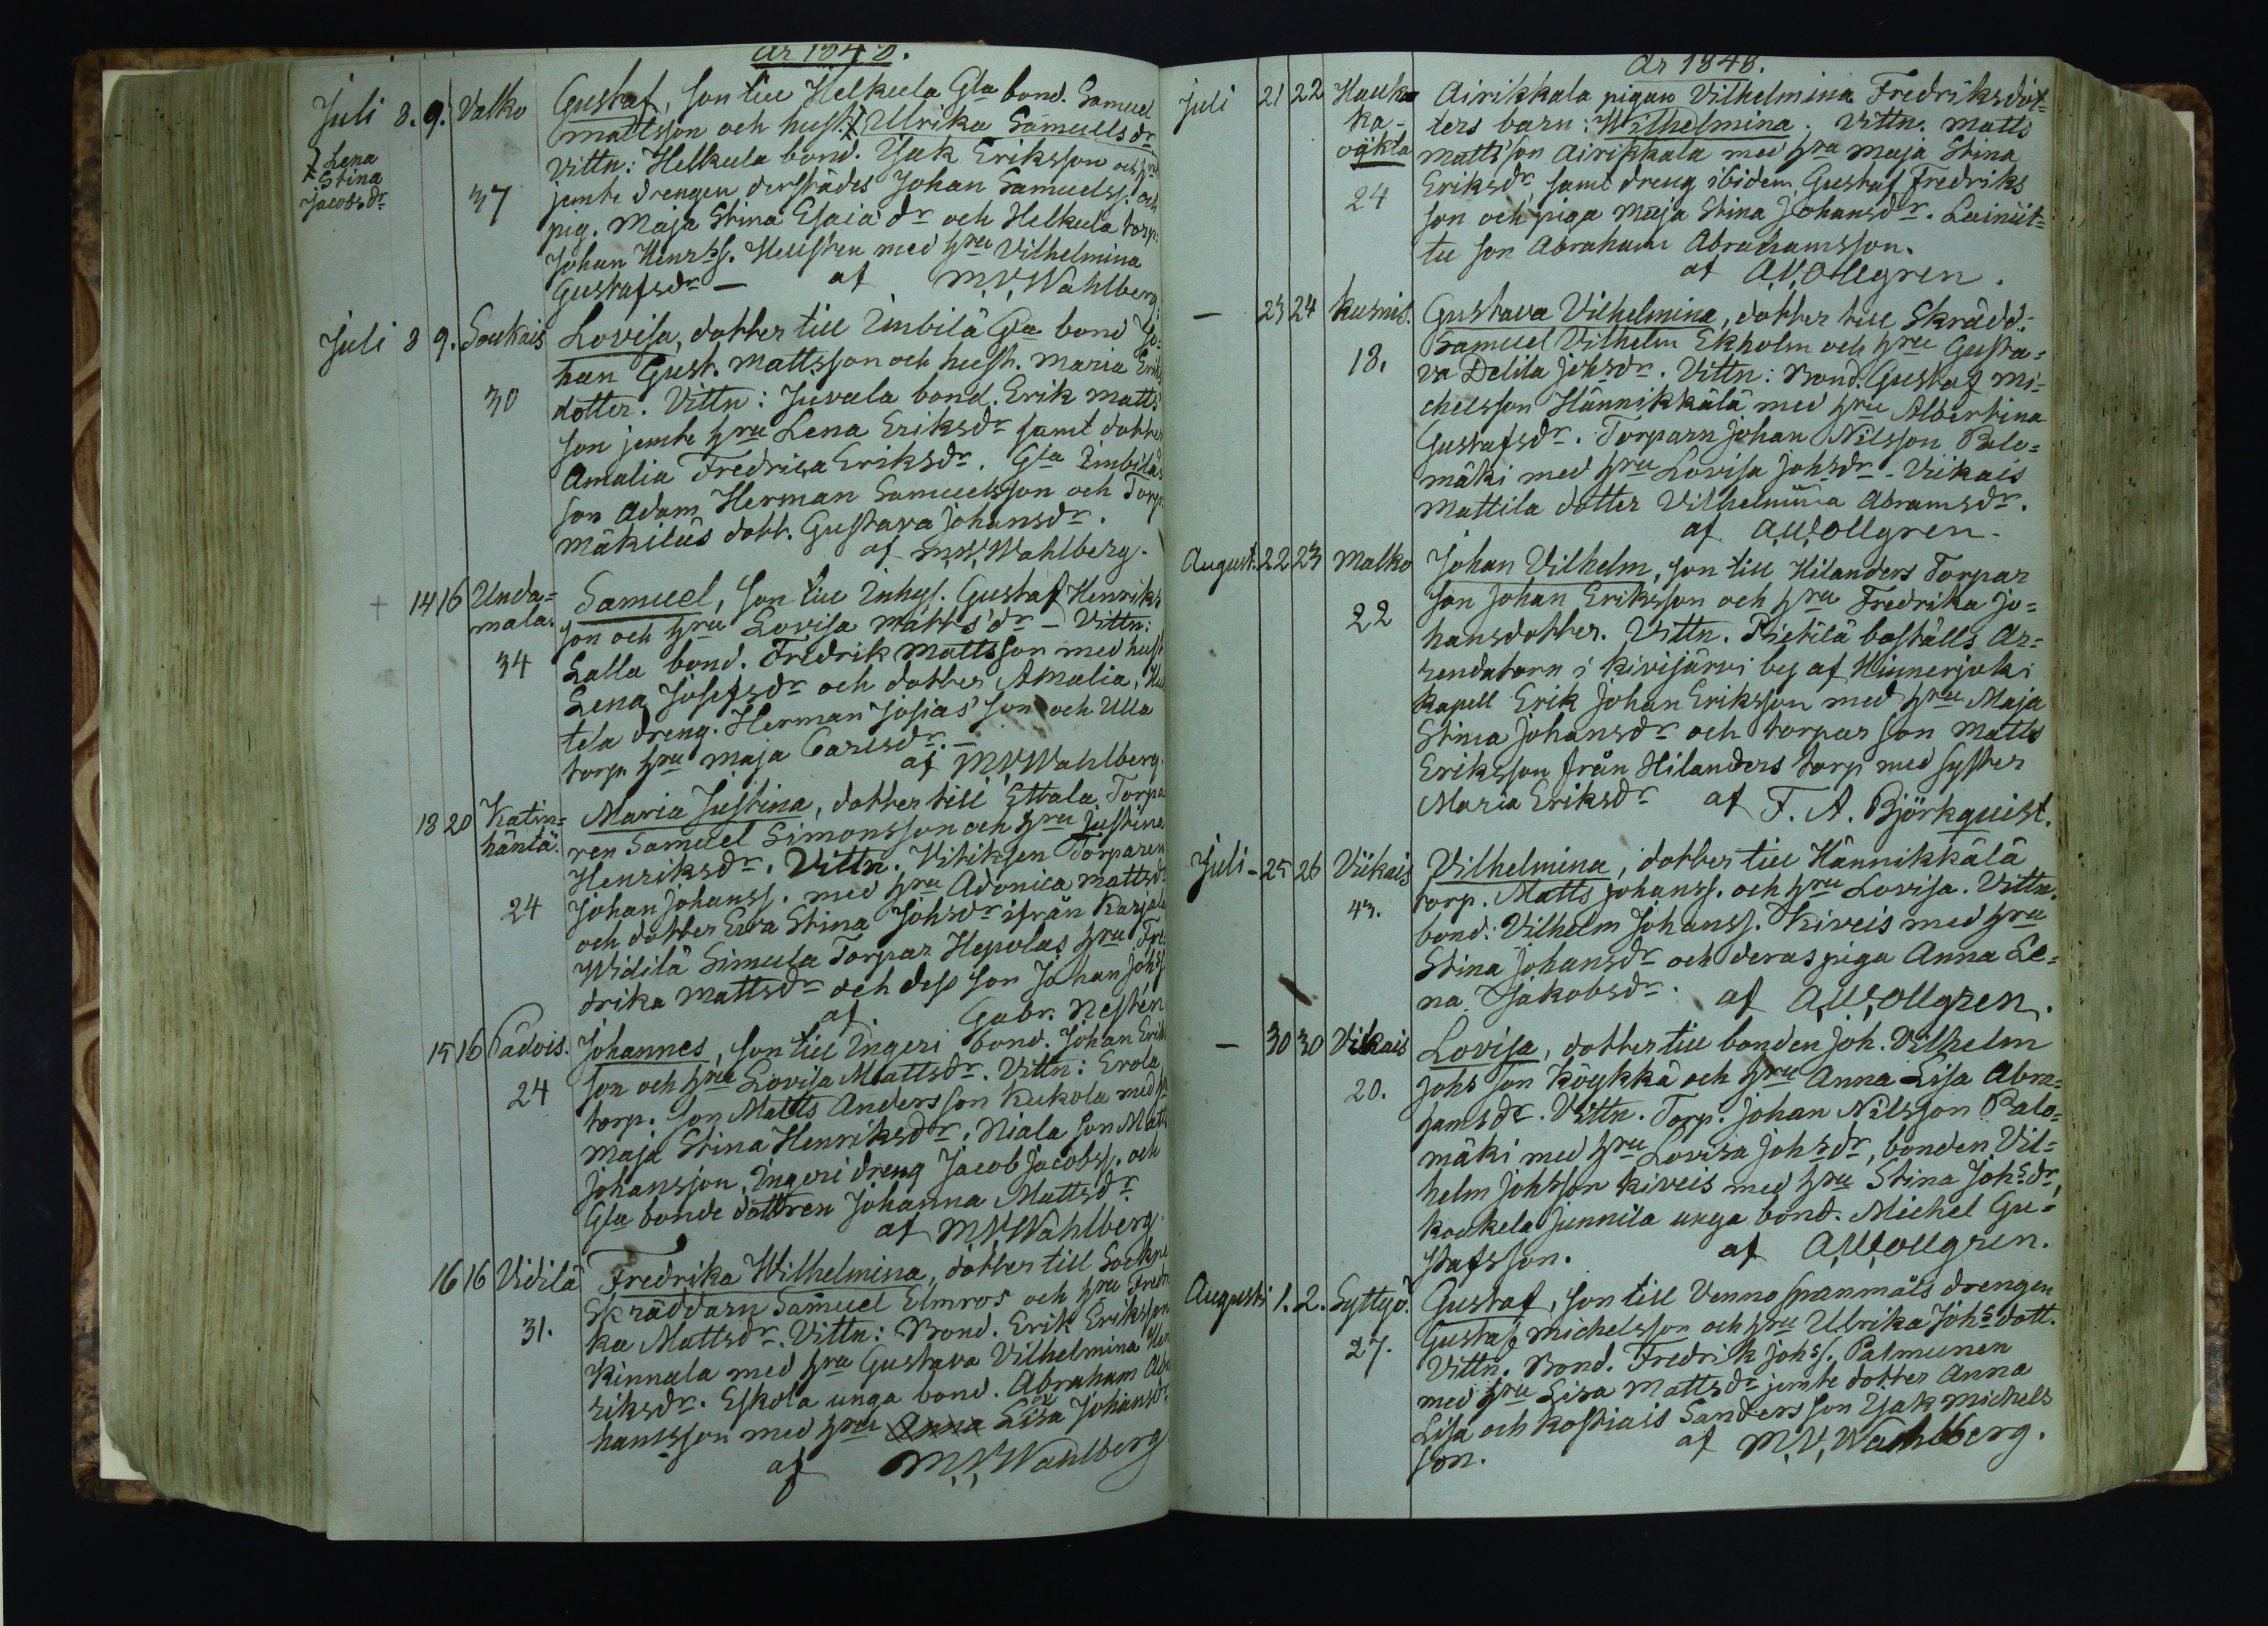 År 1848.
Juli 8. 9. Valko Gustaf, son till Helkula Gla bond. Samuel
mattsson och hust. Ulrika Samuelsdr
Lena
Stina
Jacobsdr
Vittn: Helkula bond. Isak Eriksson och hru
37 jemte drengen derstädes Johan Samuelss. och
pig. Maja Stina Esaiædr och Helkula torp:
Johan Henrss. Hellsten med hru Vilhelmina
Gustafsdr — af M.V. Wahlberg.
Juli 8 9. Soukais Lovisa, dotter till Imbilä Gla bond Jo=
han Gust. Mattsson och hust. Maria Eriks
30 dotter. Vittn: Juvala bond. Erik Matts
son jemte hru Lena Eriksdr samt dotter
Amalia Fredrica Eriksdr. Gla Imbiläs
son Adam Herman Samuelsson och Torp.
Mäkiläs dott. Gustava Johansdr.
af M.V. Wahlberg.
+ 14 16 Unda=
mala. Samuel, son till Inhys. Gustaf Henriks
son och hru Lovisa Matts'dr — Vittn:
34 Lalla bond. Fredrik Mattsson med hust
Lena Josefsdr och dotter Amalia,
tela dreng. Herman Josias'son och Ulla
torp. hru Maja Carlsdr. —
af M.V. Wahlberg.
18 20 Katin=
häntä. Maria Justina, dotter till Ettala Torpa
ren Samuel Simonsson och hru Justina
Henriksdr. Vittn. Vitiksen Torparen
24 Johan Johanss. med hru Adonica Mattsdr
och dotter Eva Stina Johsdr ifrån Karjala
Widilä Simula Torpar Hepolas hru Fre
drika Mattsdr och dess son Johan Johss
af Gabr. Nestén
15 16 Cadois. Johannes, son till Ingeri bond. Johan Eriks
24 son och hru Lovisa Mattsdr. Vittn: Erola
torp. son Matts Andersson Kukola med
Maja Stina Henriksdr. Niala son Matts
Johansson, Ingeri dreng Jacob Jacobss. och
Gla bonde dottren Johanna Mattsdr
af M.V. Wahlberg.
16 16 Vidilä Fredrika Wilhelmina, dotter till Sockne
31. Skräddarn Samuel Elmros och hru Fredri
ka Mattsdr. Vittn: Bond. Erik Eriksson
Kinnala med hru Gustava Vilhelmina Hen
riksdr. Eskola unga bond. Abraham Abra
hamsson med hru Anna Lisa Johansdr.
af M.V. Wahlberg
År 1848.
Juli 21 22 Hauka
ka-
oäkta Airikkala pigan Vilhelmina Fredriksdot=
ters barn: Wilhelmina. Vittn. Matts
Matts'son Airikkala med hru Maja Stina
24 Eriksdr samt dreng ibidem Gustaf Fredriks
son och piga Maja Stina Johansdr. Lainiit=
tu son Abraham Abrahamsson.
af A.W. Ollgren.
— 23 24 Kusnis. Gustava Vilhelmina, dotter till Skrädd:
18. Samuel Vilhelm Ekholm och hru Gusta=
va Delila Johsdr. Vittn: Bond. Gustaf Mi=
chelsson Hännikkälä med hru Albertina
Gustafsdr. Torparn Johan Nilsson Palo=
mäki med hru Lovisa Johsdr - Viikais
Mattila dotter Vilhelmina Abramsdr.
af A.W. Ollgren.
August. 22 23 Malko Johan Vilhelm, son till Hilanders Torpar
22 son Johan Eriksson och hru Fredrika Jo=
hansdotter. Vittn. Pietilä boställs Ar=
rendatorn i Kivijärvi by af Hinnerjoki
kapell Erik Johan Eriksson med hru Maja
Stina Johansdr och torpar son Matts
Eriksson från Hilanders torp med syster
Maria Eriksdr af F. A. Björkquist.
Juli - 25 26 Viikais Vilhelmina, dotter till Hännikkälä
43. torp. Matts Johanss. och hru Lovisa. Vittn.
bond: Vilhelm Johanss. Kiveis med hru
Stina Johansdr och deras piga Anna Le=
na Jakobsdr. af A.W. Ollgren.
— 30 30 Viikais Lovisa, dotter till bonden Joh. Vilhelm
20. Johs son Köykkä och hru Anna Lisa Abra=
hamsdr. Vittn. Torp. Johan Nilsson Palo=
mäki med hru Lovisa Johsdr, bonden Vil=
helm Johsson Kiveis med hru Stina Johsdr,
Koukela Junnila unga bond. Michel Gu=
stafsson. af A.W. Ollgren.
Augusti 1. 2. Syttyö. Gustaf, son till Venno spanmåls drengen
27. Gustaf Michelsson och hru Ulrika Johsdott.
Vittn. Bond. Fredrik Johss. Palmunen
med hru Lisa Mattsdr jemte dotter Anna
Lisa och Kostiais Sanders son Isak Michels
son. af M.V. Wahlberg.